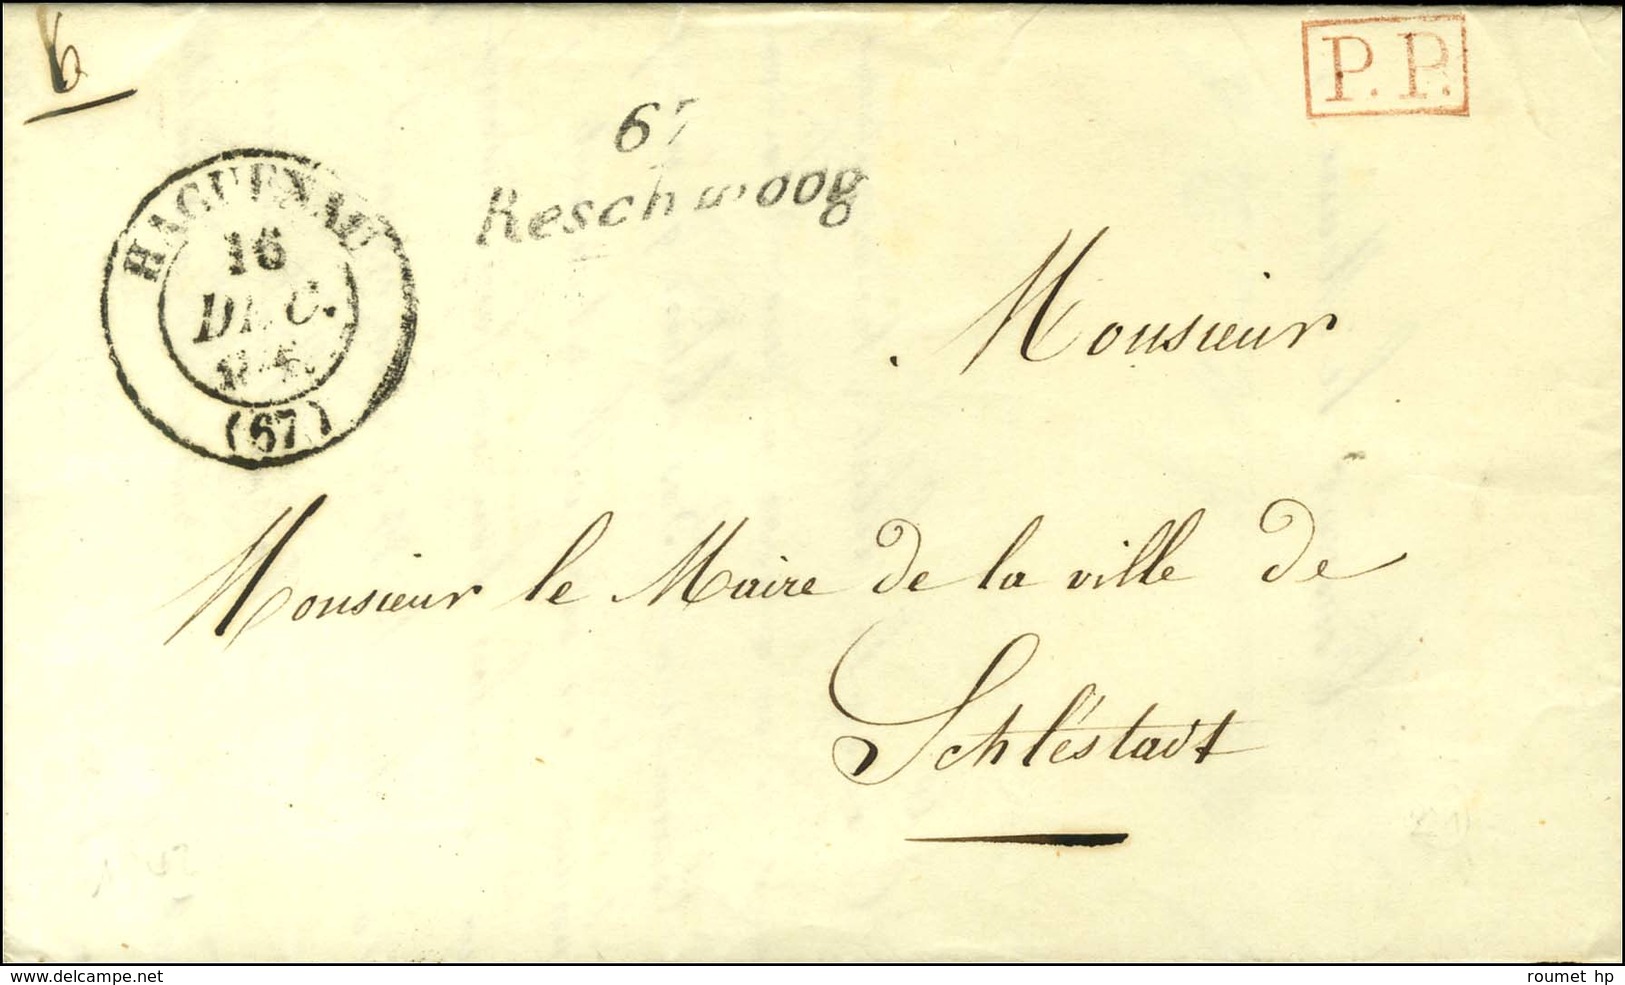 6
P.P.
67
Reschwoog
HAGUENAU
16
DEC.
(67)
Monsieur
Monsieur le Maire de la ville de
Schléstadt
www.delcampe.net
roumet hp